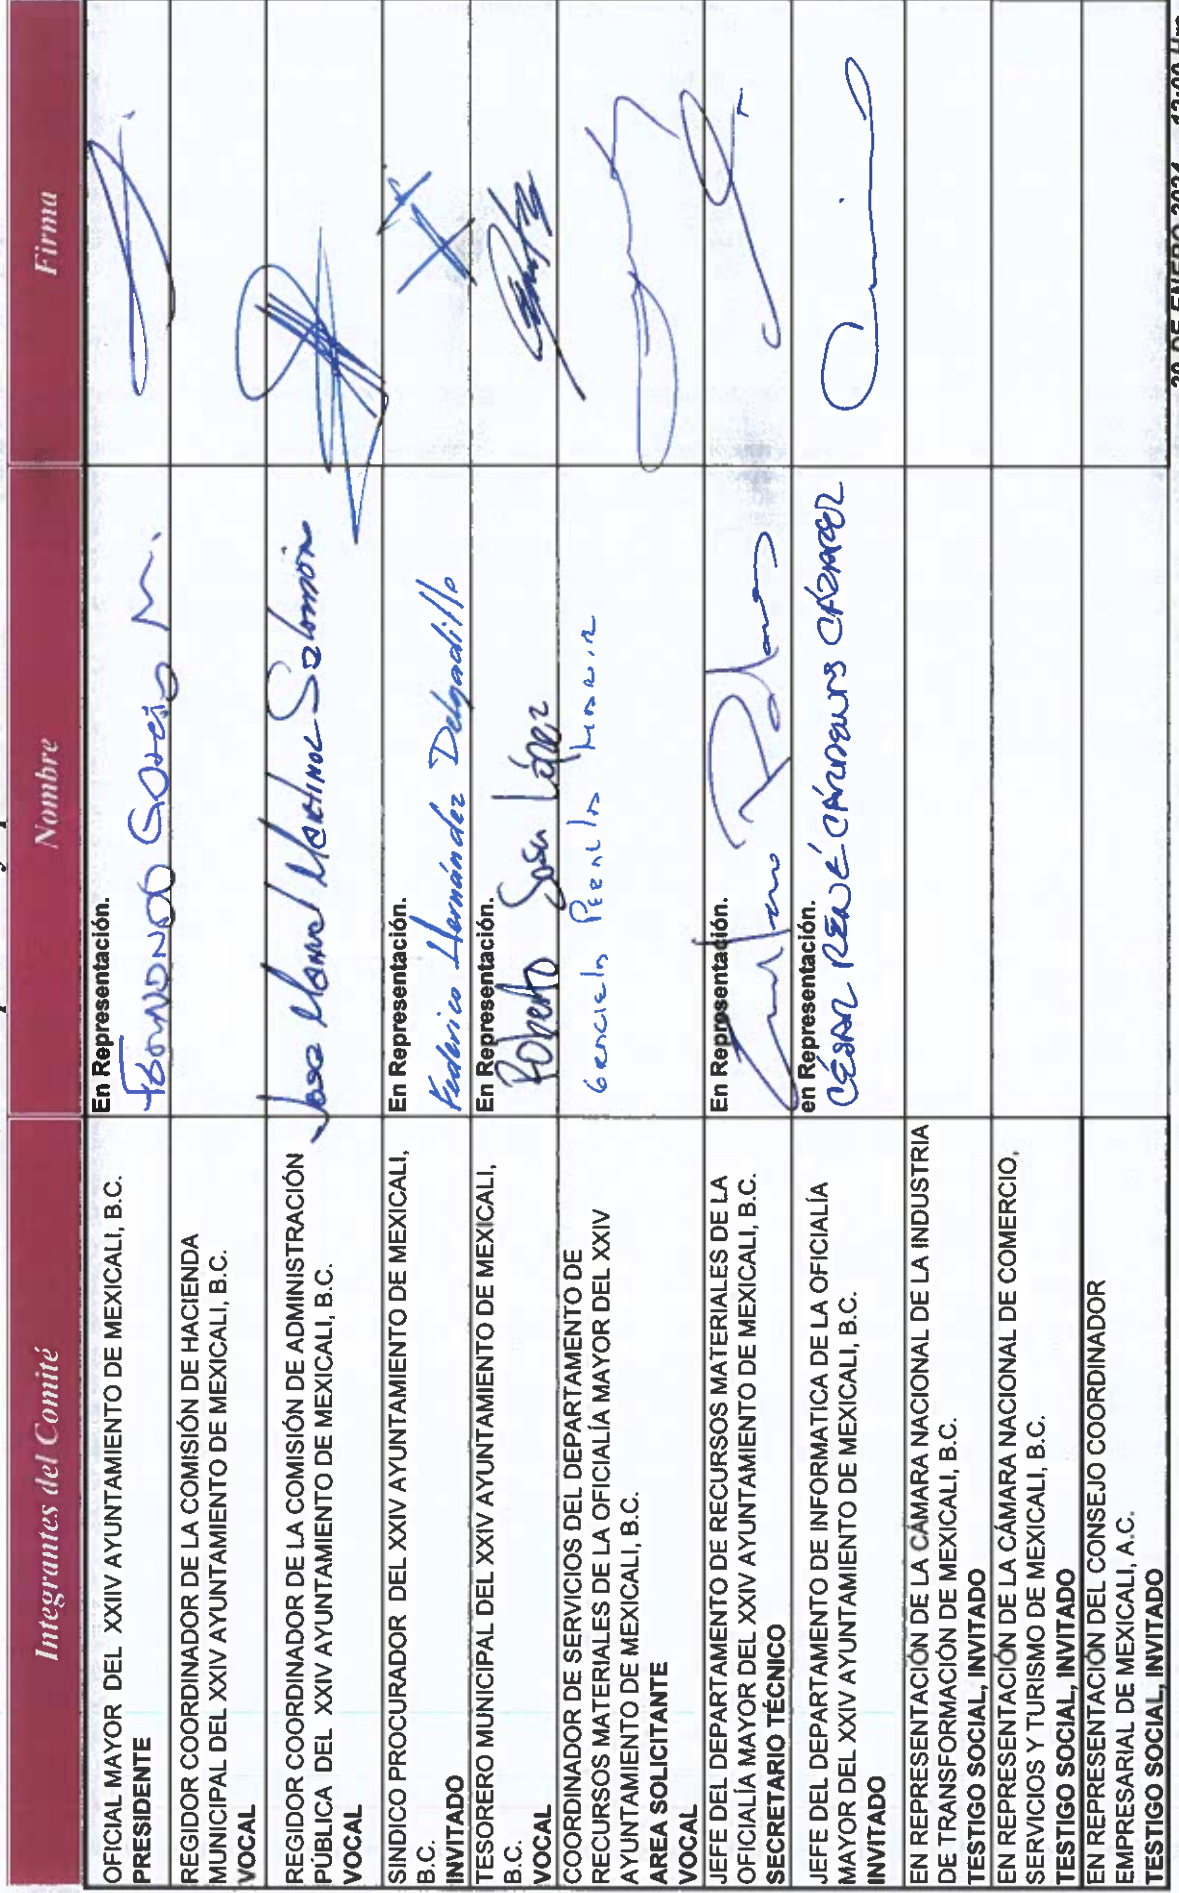 Integrantes del Comité Nombre Firma
OFICIAL MAYOR DEL XXIIV AYUNTAMIENTO DE MEXICALI, B.C.
PRESIDENTE
En Representación.
REGIDOR COORDINADOR DE LA COMISIÓN DE HACIENDA
MUNICIPAL DEL XXIV AYUNTAMIENTO DE MEXICALI, B.C.
VOCAL
REGIDOR COORDINADOR DE LA COMISIÓN DE ADMINISTRACIÓN
PÚBLICA DEL XXIV AYUNTAMIENTO DE MEXICALI, B.C.
VOCAL
Jose Manuel Martinez Salomón
SINDICO PROCURADOR DEL XXIV AYUNTAMIENTO DE MEXICALI,
B.C.
INVITADO
En Representación.
Federico Hernández Delgadillo
TESORERO MUNICIPAL DEL XXIV AYUNTAMIENTO DE MEXICALI,
B.C.
VOCAL
En Representación.
Roberto Sosa López
COORDINADOR DE SERVICIOS DEL DEPARTAMENTO DE
RECURSOS MATERIALES DE LA OFICIALÍA MAYOR DEL XXIV
AYUNTAMIENTO DE MEXICALI, B.C.
AREA SOLICITANTE
VOCAL
JEFE DEL DEPARTAMENTO DE RECURSOS MATERIALES DE LA
OFICIALÍA MAYOR DEL XXIV AYUNTAMIENTO DE MEXICALI, B.C.
SECRETARIO TÉCNICO
En Representación.
JEFE DEL DEPARTAMENTO DE INFORMATICA DE LA OFICIALÍA
MAYOR DEL XXIV AYUNTAMIENTO DE MEXICALI, B.C.
INVITADO
en Representación.
CÉSAR RENÉ CÁRDENAS CÁZAREZ
EN REPRESENTACIÓN DE LA CÁMARA NACIONAL DE LA INDUSTRIA
DE TRANSFORMACIÓN DE MEXICALI, B.C.
TESTIGO SOCIAL, INVITADO
EN REPRESENTACIÓN DE LA CÁMARA NACIONAL DE COMERCIO,
SERVICIOS Y TURISMO DE MEXICALI, B.C.
TESTIGO SOCIAL, INVITADO
EN REPRESENTACIÓN DEL CONSEJO COORDINADOR
EMPRESARIAL DE MEXICALI, A.C.
TESTIGO SOCIAL, INVITADO
DE ENERO 2024